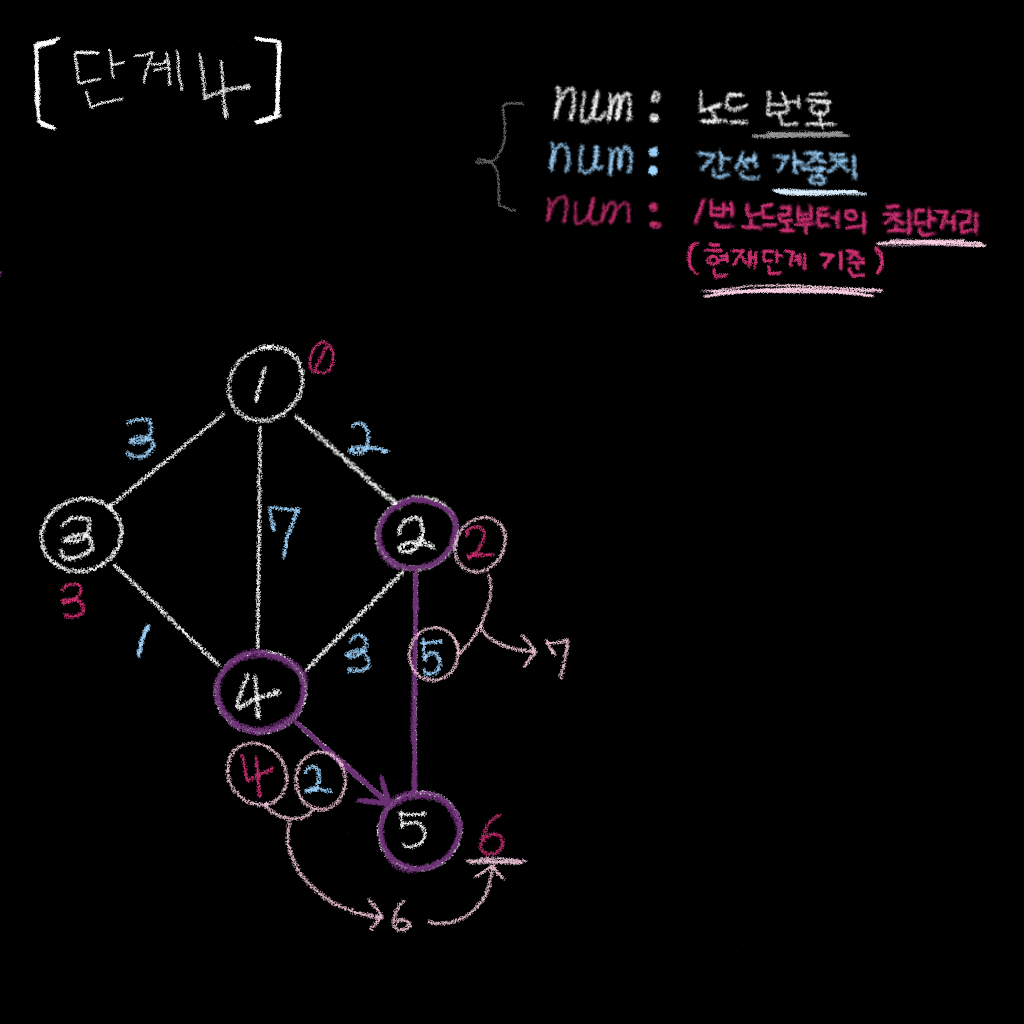 [단계 4]
num : 노드 번호
num : 간선 가중치
num : 1번 노드로부터의 최단거리
(현재단계 기준)
1 0
3 2
3 7 2 2
3
1 3 5 7
4
4 2
5 6
6